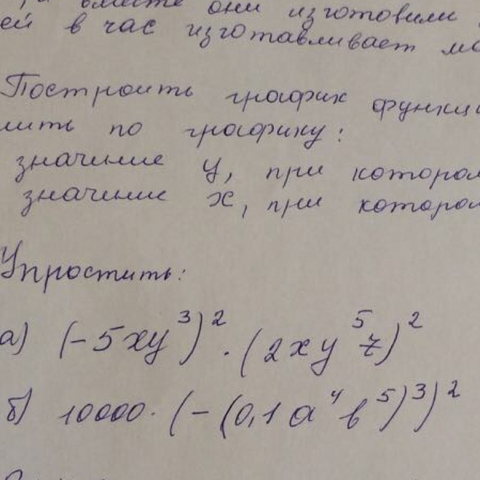 вместе они изготовили
ей в час изготавливает
Построить график функци
лить по графику:
значение y, при котором
значение x, при котором
Упростить:
а) (-5xy³)² · (2xy⁵z)²
б) 10000 · (-(0,1a⁴b⁵)³)²